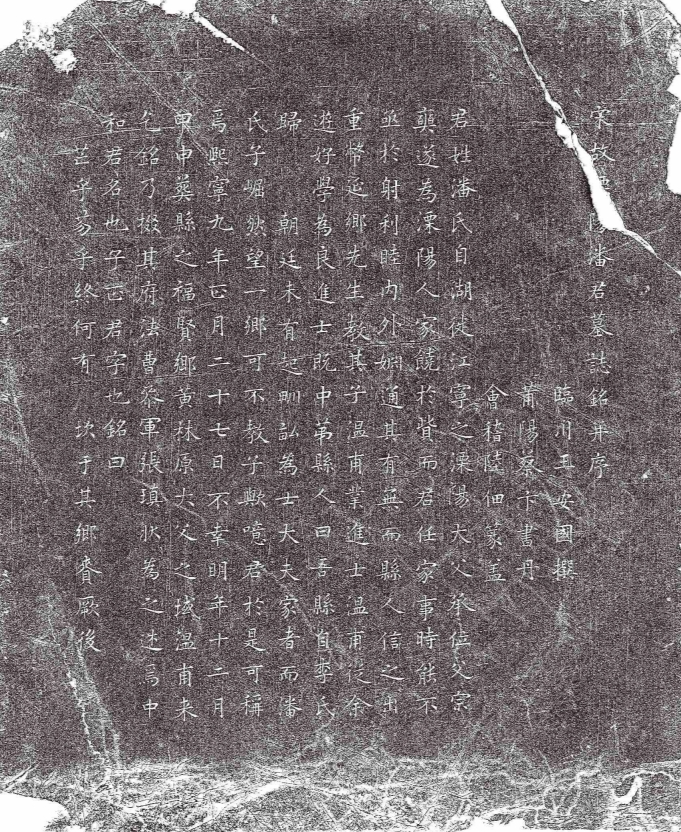 宋故溧陽潘君墓誌銘并序
臨川王安國撰
莆陽蔡卞書丹
會稽陸佃篆蓋
君姓潘氏自湖徙江寧之溧陽大父承位父宗
奭遂為溧陽人家饒於貲而君任家事時能不
亟於射利睦內外姻通其有無而縣人信之出
重幣延鄉先生教其子溫甫業進士溫甫從余
遊好學為良進士既中第縣人曰吾縣自李氏
歸 朝廷未有起甽畝為士大夫家者而潘
氏子崛欻望一鄉可不教子歟噫君於是可稱
焉熙寧九年正月二十七日不幸明年十二月
甲申葬縣之福賢鄉黃棶原大父之域溫甫来
乞銘乃掇其府法曹叅軍張瑱狀為之述焉中
和君名也子正君字也銘曰
芒乎芴乎終何有 坎于其鄉賚厥後